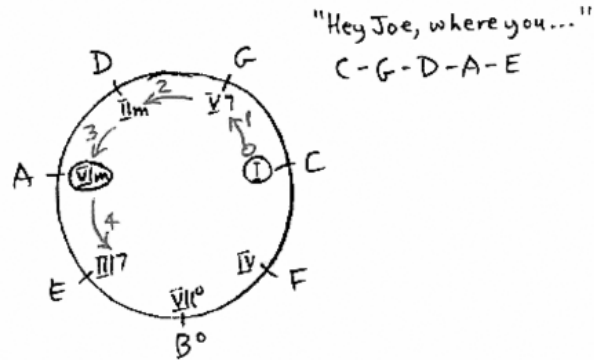 "Hey Joe, where you..."
C-G-D-A-E
D
G
2
IIm
V7
3
1
0
A
VIm
I
C
4
III7
IV
E
VII°
F
B°